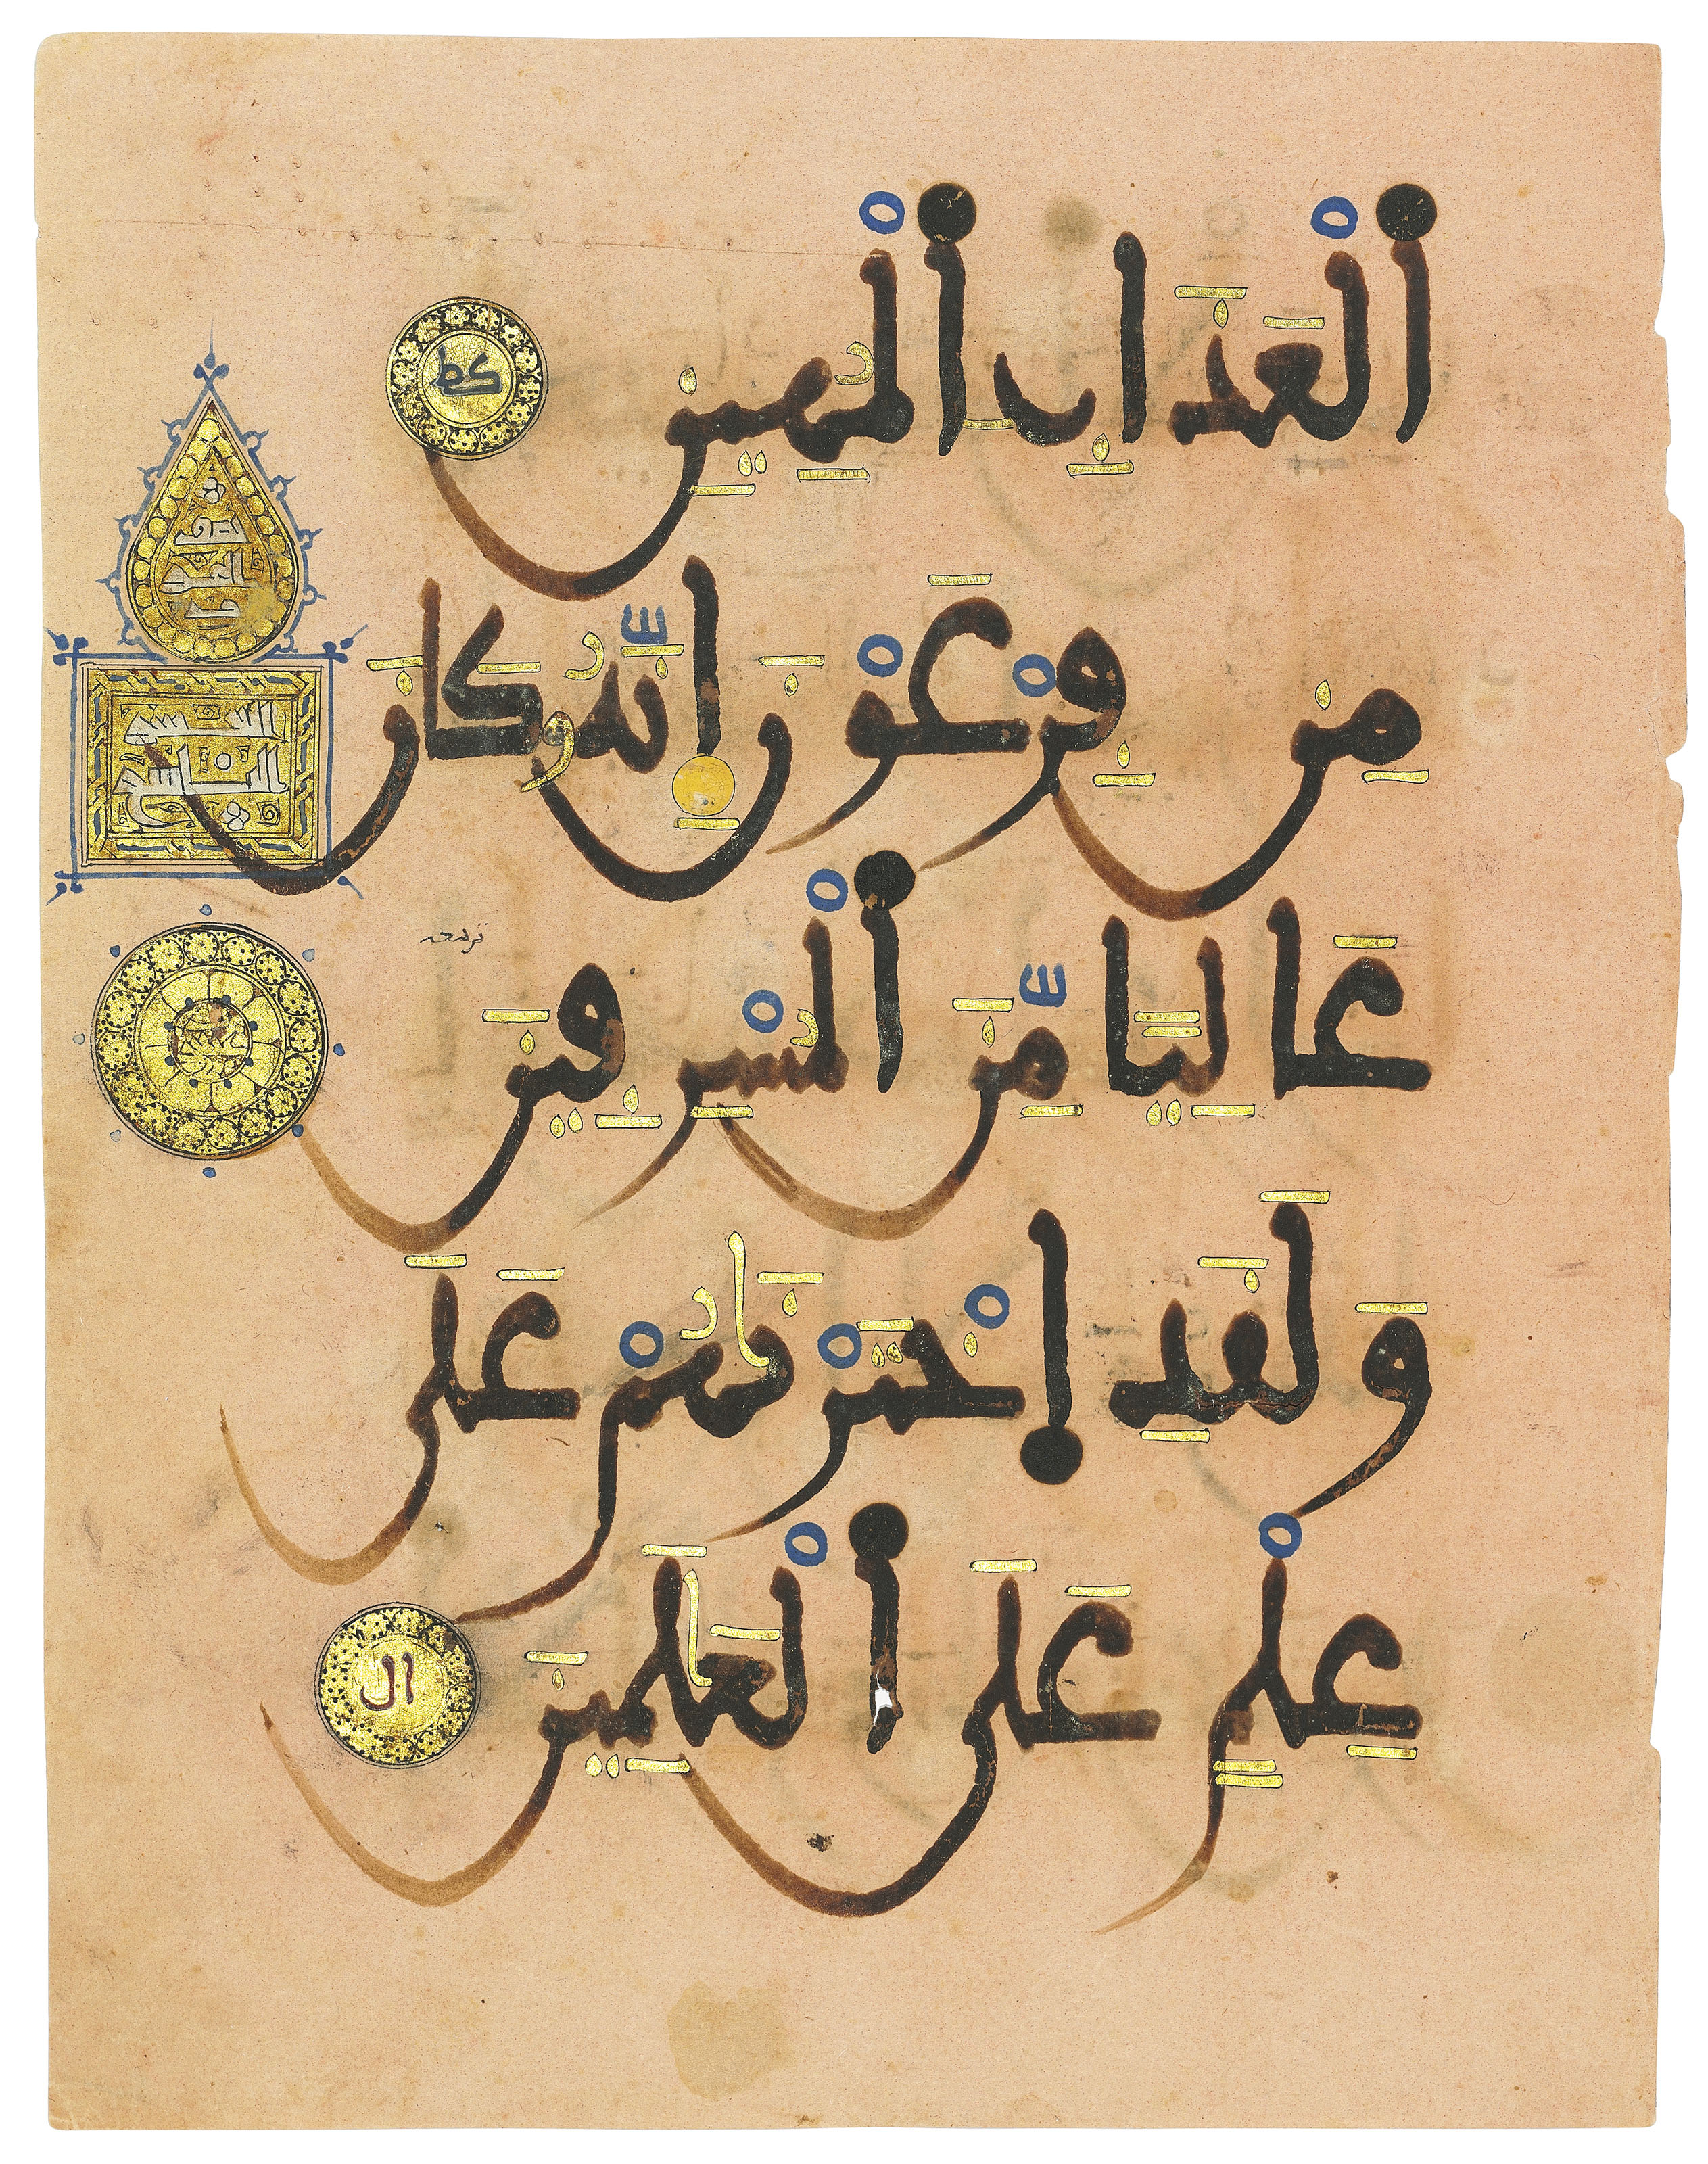 ٱلْعَذَابِ ٱلْمُهِينِ كط
مِن فِرْعَوْنَ إِنَّهُۥ كَانَ
عَالِيًا مِّنَ ٱلْمُسْرِفِينَ
وَلَقَدِ ٱخْتَرْنَٰهُمْ عَلَىٰ
عِلْمٍ عَلَى ٱلْعَٰلَمِينَ ال